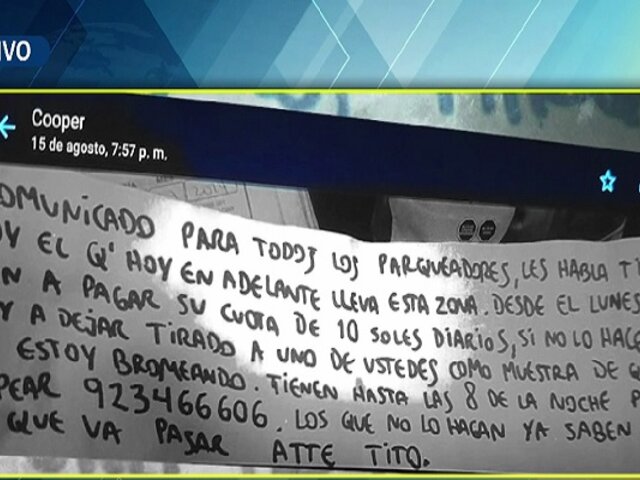 IVO
Cooper
15 de agosto, 7:57 p. m.
OMUNICADO PARA TODOS LOS PARQUEADORES, LES HABLA TI
Y EL Q' HOY EN ADELANTE LLEVA ESTA ZONA. DESDE EL LUNES
N A PAGAR SU CUOTA DE 10 SOLES DIARIOS, SI NO LO HACE
Y A DEJAR TIRADO A UNO DE USTEDES COMO MUESTRA DE Q
ESTOY BROMEANDO. TIENEN HASTA LAS 8 DE LA NOCHE P
PEAR 923466606. LOS QUE NO LO HAGAN YA SABEN
QUE VA PASAR ATTE TITO.